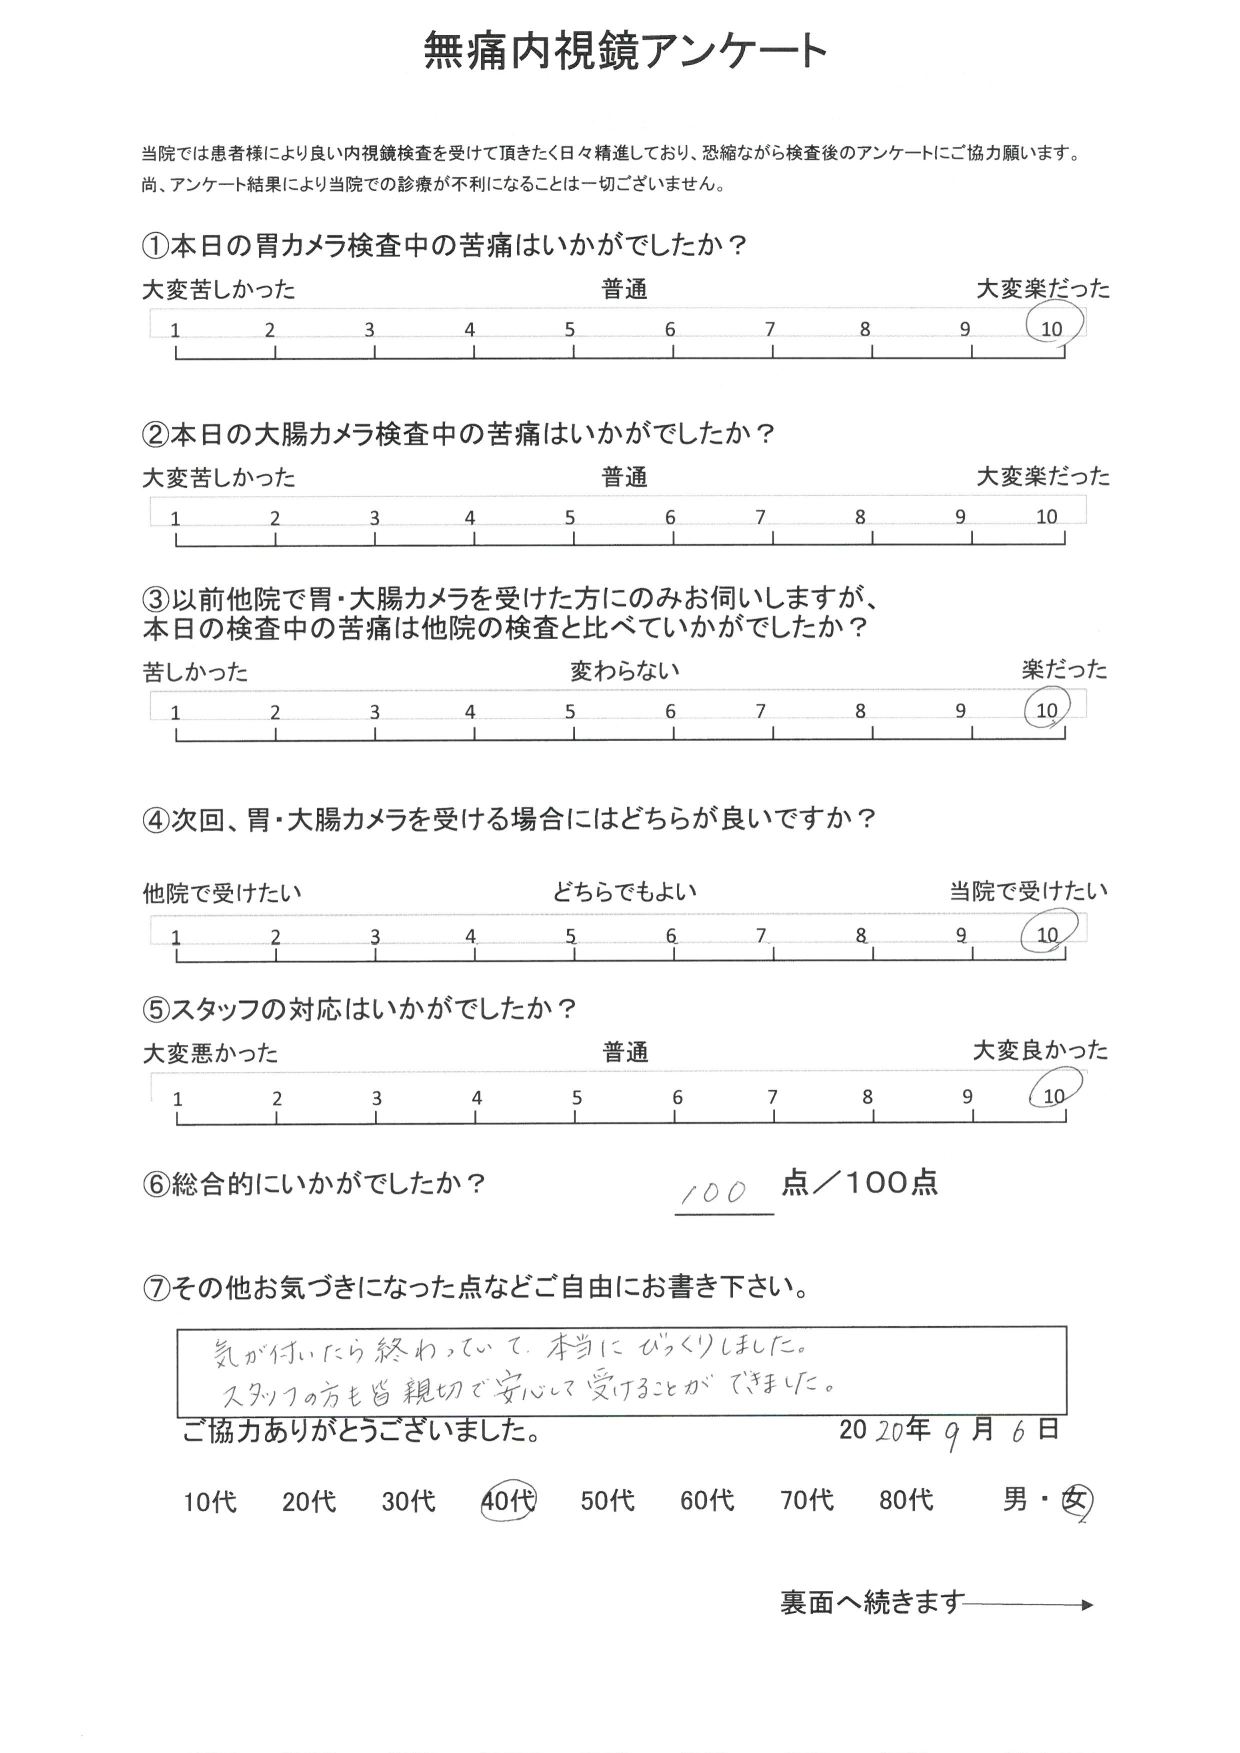 無痛内視鏡アンケート
当院では患者様により良い内視鏡検査を受けて頂きたく日々精進しており、恐縮ながら検査後のアンケートにご協力願います。
尚、アンケート結果により当院での診療が不利になることは一切ございません。
①本日の胃カメラ検査中の苦痛はいかがでしたか？
大変苦しかった 普通 大変楽だった
1 2 3 4 5 6 7 8 9 10
②本日の大腸カメラ検査中の苦痛はいかがでしたか？
大変苦しかった 普通 大変楽だった
1 2 3 4 5 6 7 8 9 10
③以前他院で胃・大腸カメラを受けた方にのみお伺いしますが、
本日の検査中の苦痛は他院の検査と比べていかがでしたか？
苦しかった 変わらない 楽だった
1 2 3 4 5 6 7 8 9 10
④次回、胃・大腸カメラを受ける場合にはどちらが良いですか？
他院で受けたい どちらでもよい 当院で受けたい
1 2 3 4 5 6 7 8 9 10
⑤スタッフの対応はいかがでしたか？
大変悪かった 普通 大変良かった
1 2 3 4 5 6 7 8 9 10
⑥総合的にいかがでしたか？ 100 点／100点
⑦その他お気づきになった点などご自由にお書き下さい。
気が付いたら終わっていて、本当にびっくりしました。
スタッフの方も皆親切で安心して受けることができました。
ご協力ありがとうございました。 2020年9月6日
10代 20代 30代 40代 50代 60代 70代 80代 男・女
裏面へ続きます